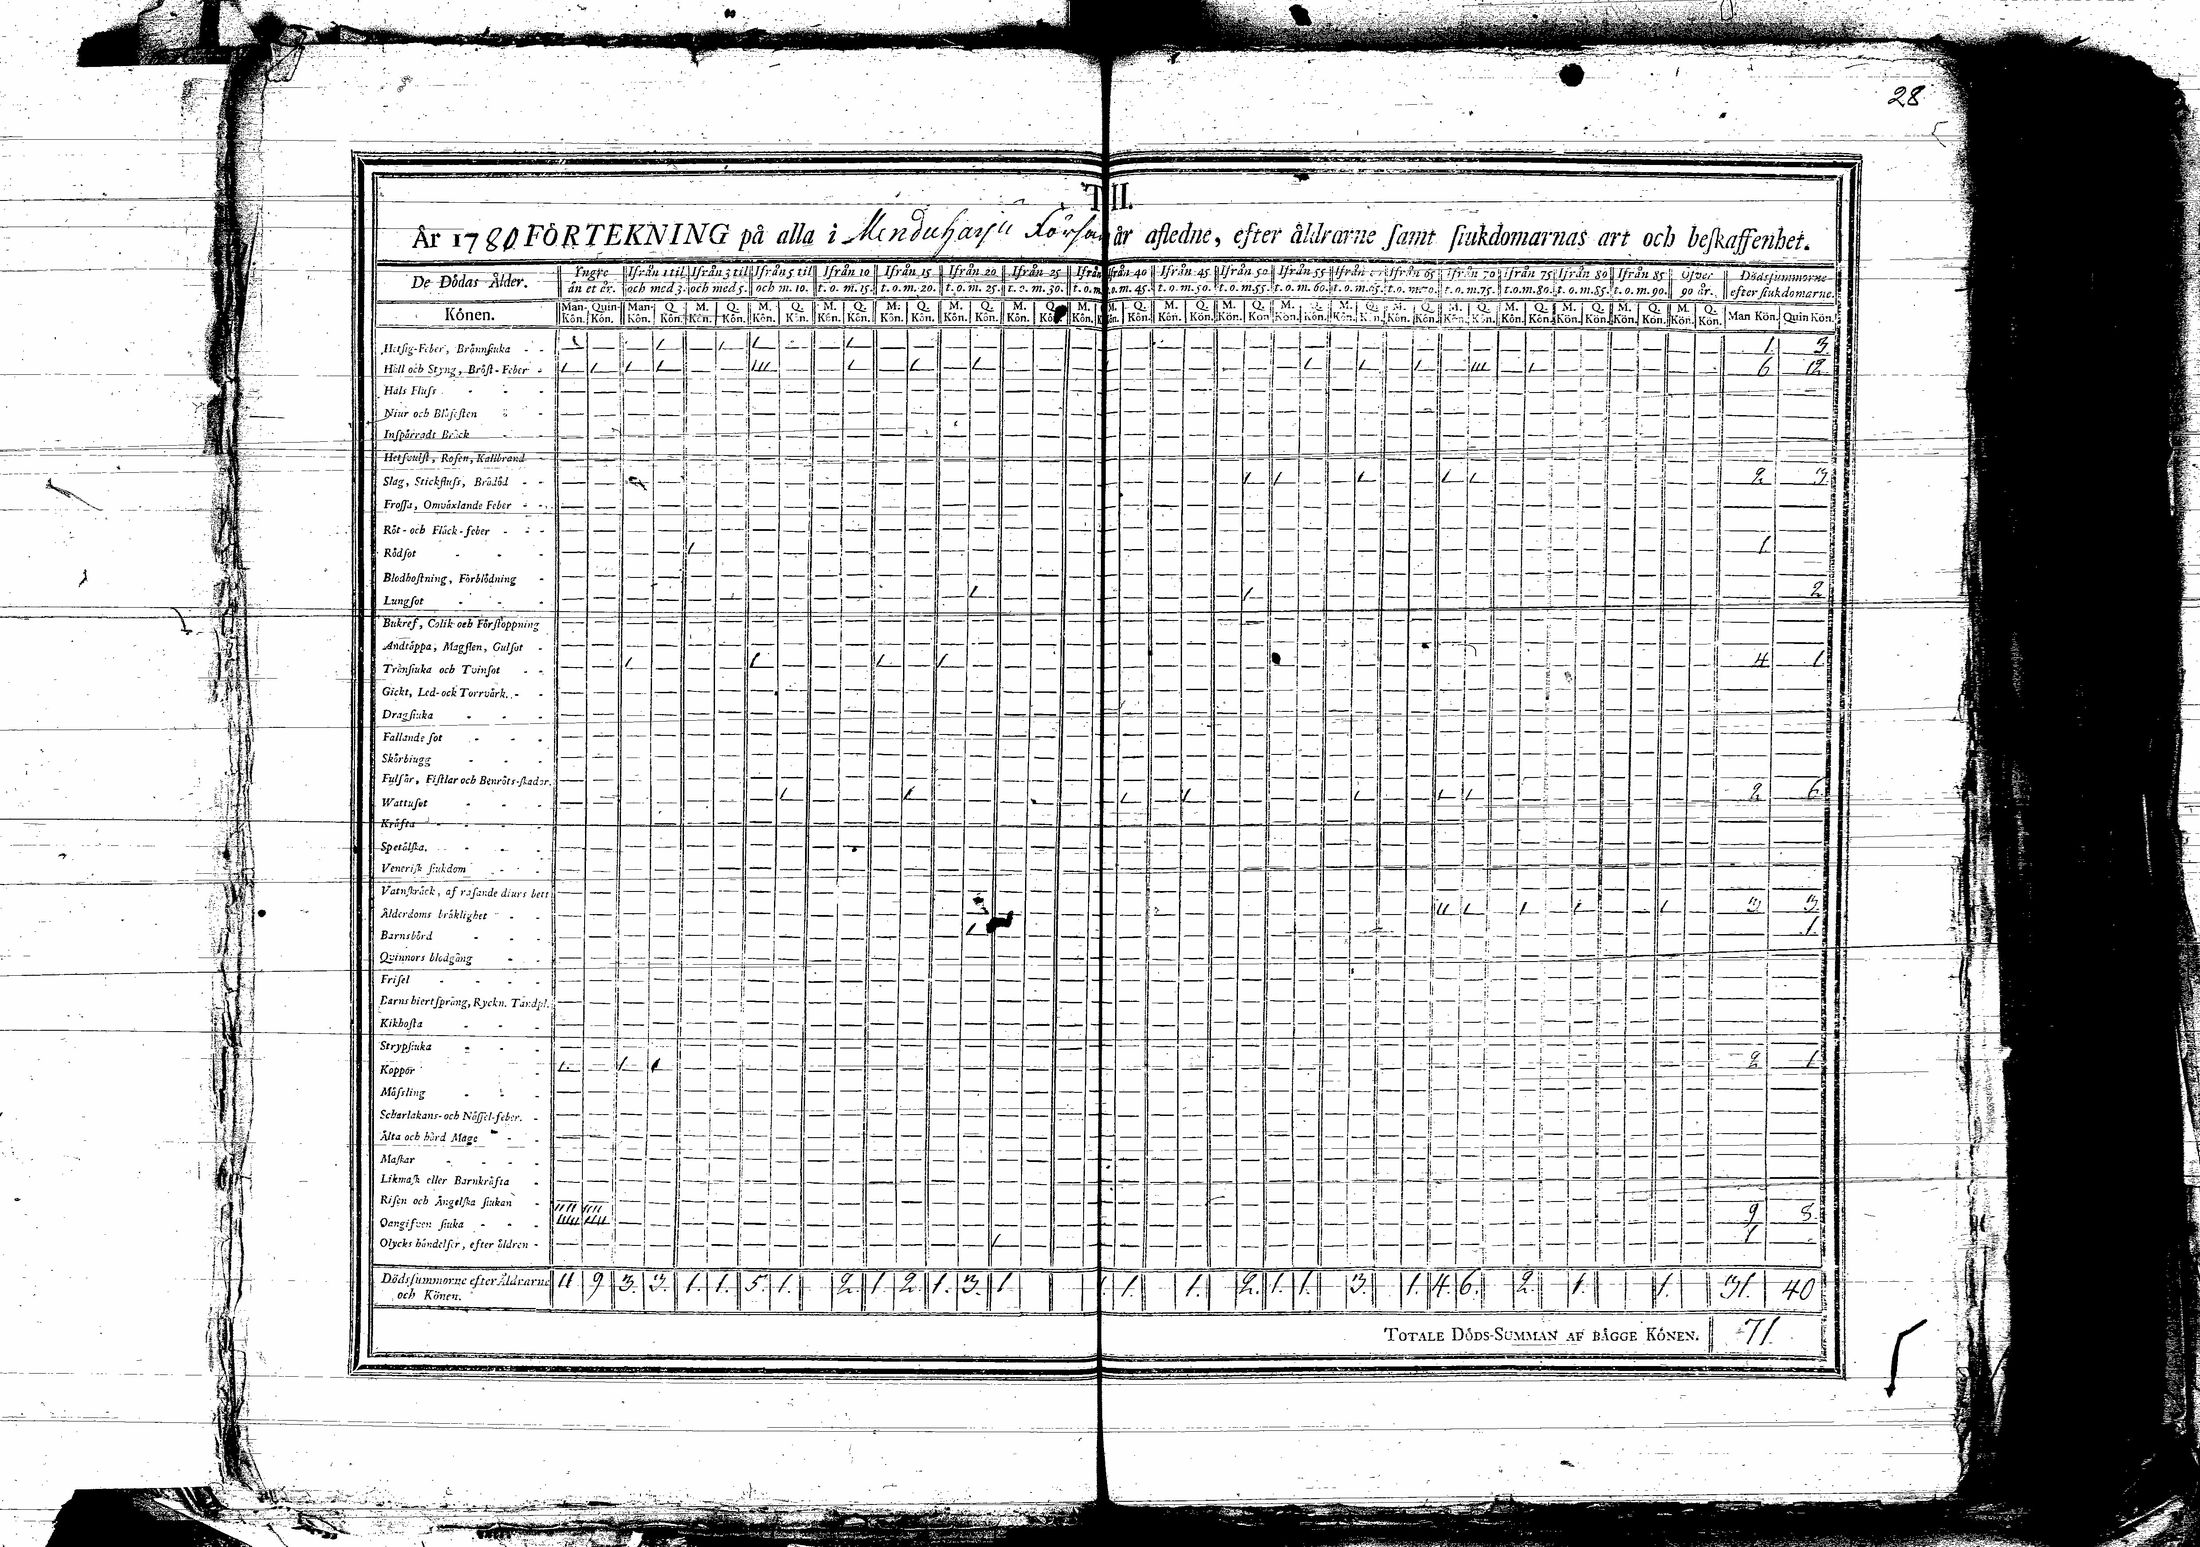 28
T II.
År 1780 FÖRTEKNING på alla i Menduharju Församl år afledne, efter åldrarne samt siukdomarnas art och beskaffenhet.
De Dödas Ålder. Yngre än et år. Ifrån 1 til och med 3. Ifrån 3 til och med 5. Ifrån 5 til och m. 10. Ifrån 10 t. o. m. 15. Ifrån 15 t. o. m. 20. Ifrån 20 t. o. m. 25. Ifrån 25 t. o. m. 30. Ifrån t. o. m. Ifrån 40 t. o. m. 45. Ifrån 45 t. o. m. 50. Ifrån 50 t. o. m. 55. Ifrån 55 t. o. m. 60. Ifrån t. o. m. 65. Ifrån 65 t. o. m. 70. Ifrån 70 t. o. m. 75. Ifrån 75 t. o. m. 80. Ifrån 80 t. o. m. 85. Ifrån 85 t. o. m. 90. Öfver 90 år. Dödssummorne efter siukdomarne.
Könen. Man-Kön. Quin-Kön. Man-Kön. Q. Kön. M. Kön. Q. Kön. M. Kön. Q. Kön. M. Kön. Q. Kön. M. Kön. Q. Kön. M. Kön. Q. Kön. M. Kön. Q. Kön. M. Kön. M. Kön. Q. Kön. M. Kön. Q. Kön. M. Kön. Q. Kön. M. Kön. Q. Kön. M. Kön. Q. Kön. M. Kön. Q. Kön. M. Kön. Q. Kön. M. Kön. Q. Kön. M. Kön. Q. Kön. M. Kön. Q. Kön. M. Kön. Q. Kön. Man Kön. Quin Kön.
Hetsig-Feber, Brännsiuka 1 3
Håll och Styng, Bröst-Feber 6 12
Hals Fluss
Niur och Blåsesten
Inspärradt Bråck
Hetsvulst, Rosen, Kallbrand
Slag, Stickfluss, Brådöd 2 3
Frossa, Omväxlande Feber
Röt- och Fläck-feber
Rödsot 1
Blodhostning, Förblödning
Lungsot 2
Bukref, Colik och Förstoppning
Andtäppa, Magsten, Gulsot
Transiuka och Tvinsot 4 1
Gickt, Led- och Torrvärk
Dragsiuka
Fallande sot
Skörbiugg
Fulsår, Fistlar och Benröts-skador.
Wattusot 2 6
Kräfta
Spetälska.
Venerisk siukdom
Vatnskräck, af rasande diurs bett
Ålderdoms bräklighet 3 3
Barnsbörd 1
Qvinnors blodgång
Frisel
Barns hiertsprång, Ryckn. Tandpl.
Kikhosta
Strypsiuka
Koppor 2 1
Mässling
Scharlakans- och Nässel-feber.
Älta och hård Mage
Maskar
Likmask eller Barnkräfta
Risen och Ängelska siukan
Oangifven siuka 9 8
Olycks händelser, efter åldren 1
Dödssummorne efter Åldrarne och Könen. 11 9 3. 3. 1. 1. 5. 1. 2. 1. 2. 1. 3. 1 1. 1. 2. 1. 1. 3. 1. 4. 6. 2. 1. 1. 31. 40
TOTALE DÖDS-SUMMAN AF BÄGGE KÖNEN. 71